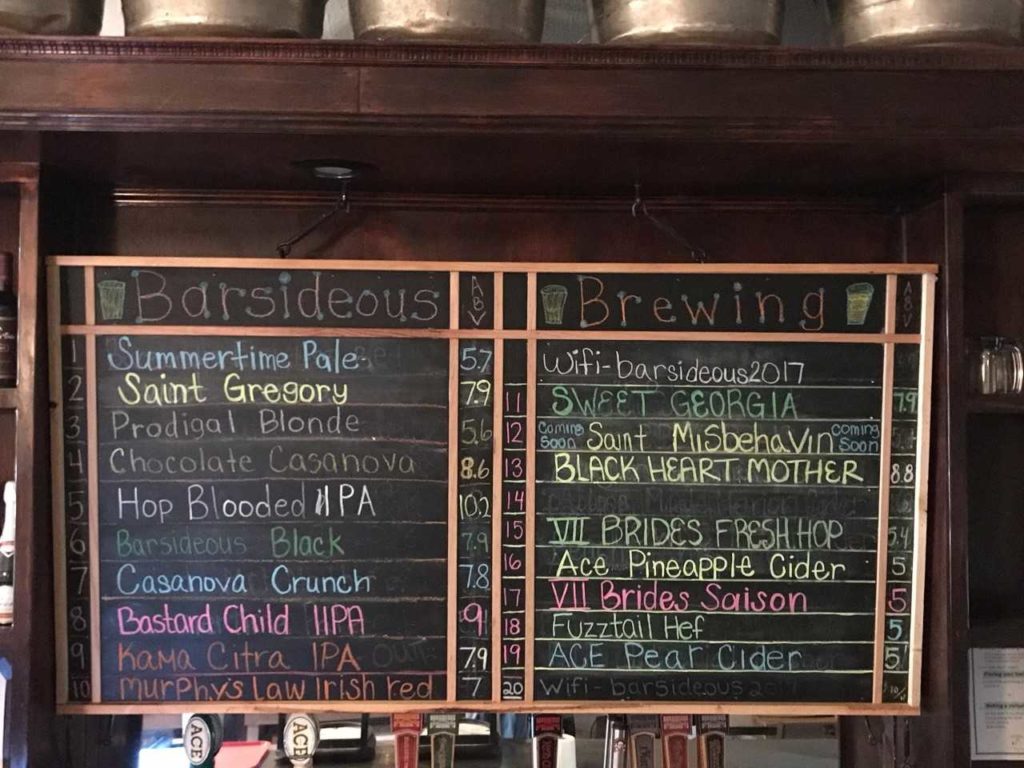 Barsideous ABV
1 Summertime Pale 5.7
2 Saint Gregory 7.9
3 Prodigal Blonde 5.6
4 Chocolate Casanova 8.6
5 Hop Blooded IIPA 10.2
6 Barsideous Black 7.9
7 Casanova Crunch 7.8
8 Bastard Child IIPA 9.1
9 Kama Citra IPA OUT 7.9
10 Murphy's Law Irish red 7
Brewing ABV
Wifi-barsideous2017
11 SWEET GEORGIA 7.9
12 Coming Soon Saint MiSbehaVin coming Soon
13 BLACK HEART MOTHER 8.8
14
15 VII BRIDES FRESH HOP 5.4
16 Ace Pineapple Cider 5
17 VII Brides Saison 5
18 Fuzztail Hef 5
19 ACE Pear Cider 5
20 Wifi-barsideous
ACE
ACE